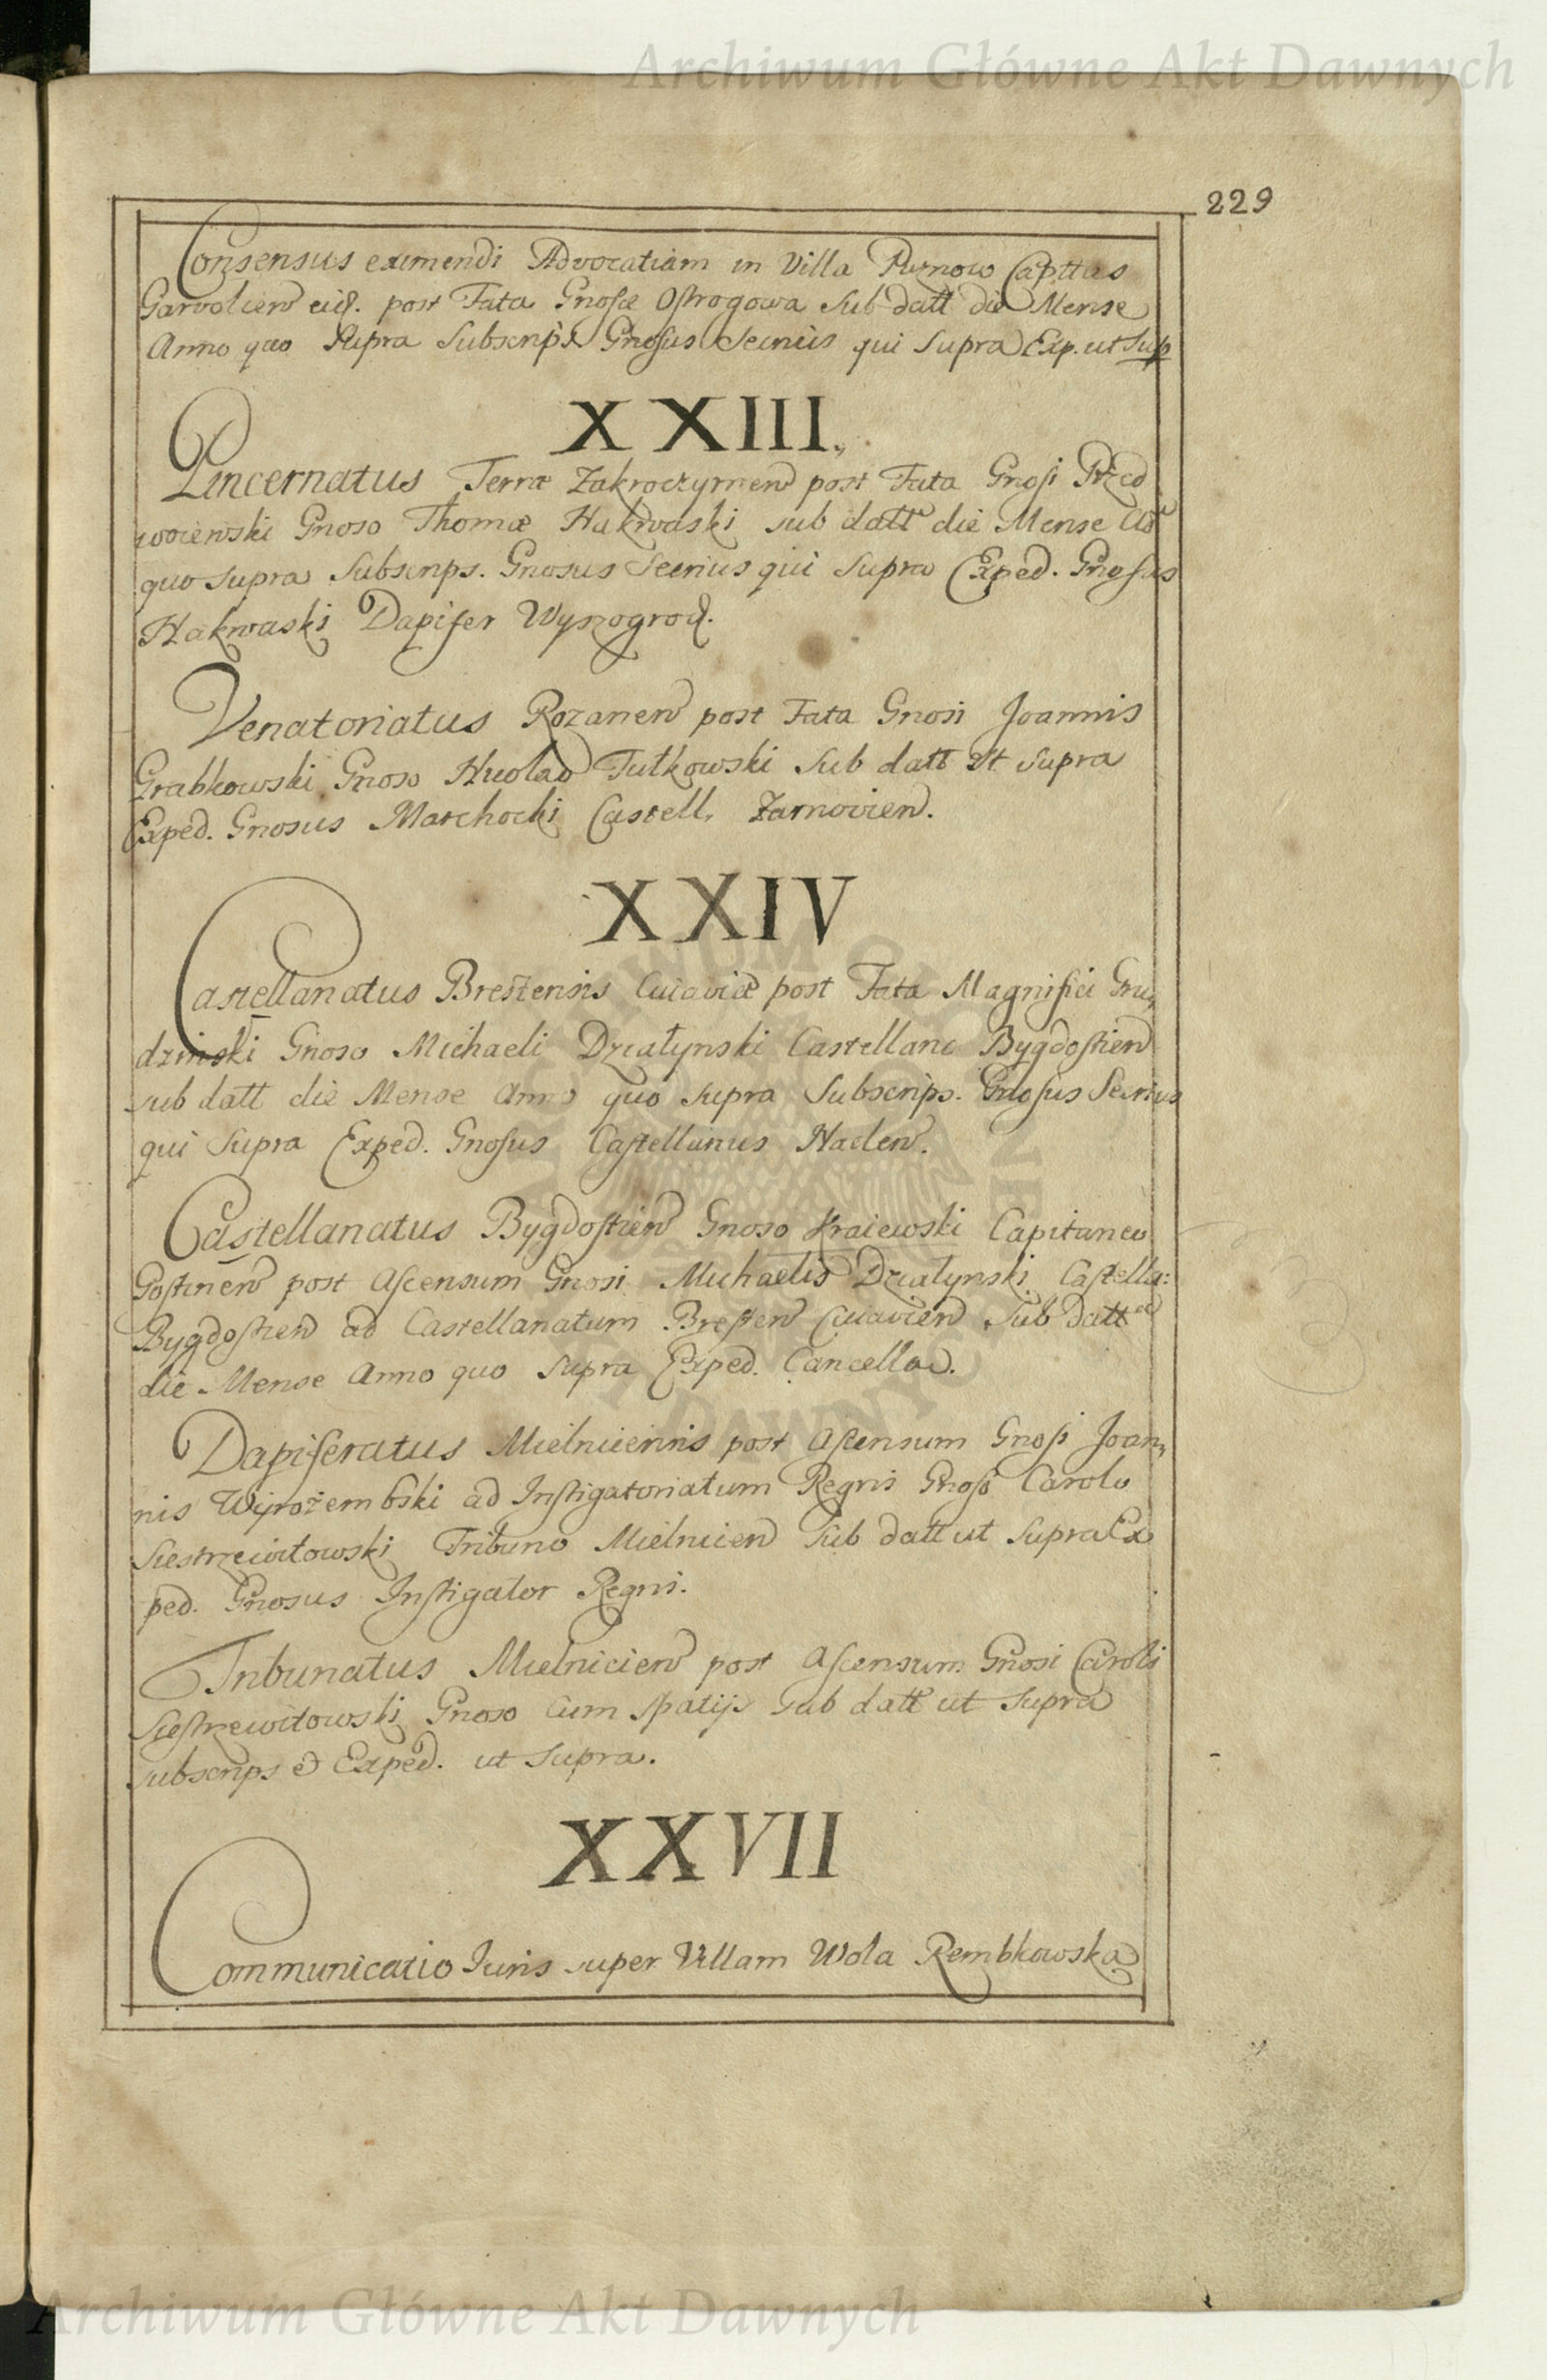 Archiwum Główne Akt Dawnych
229
Consensus eximendi Advocatiam in Villa Puznow Capttus
Garvolien eid. post Fata Gnosæ Ostrogowa sub datt die Mense
Anno quo supra Subscrips Gnosus Secrius qui supra Exp. ut sup
XXIII.
Pincernatus Terræ Zakroczymen post Fata Gnosi Przed
woiewski Gnoso Thomæ Nakwaski sub datt die Mense
quo supra Subscrips. Gnosus Secrius qui supra Exped. Gnosus
Nakwaski Dapifer Wyszogrod.
Venatoriatus Rozanen post Fata Gnosi Joannis
Grabkowski Gnoso Nicolao Tułkowski sub datt ut supra
Exped. Gnosus Marchocki Castell. Zarnovien.
XXIV
Castellanatus Brestensis Cuiaviæ post Fata Magnifici Gru„
dzinski Gnoso Michaeli Działynski Castellano Bygdostien
sub datt die Mense Anno quo supra Subscrips. Gnosus Secrius
qui supra Exped. Gnosus Castellanus Naclen.
Castellanatus Bygdostien Gnoso Kraiewski Capitaneo
Gostinen post Ascensum Gnosi Michaelis Działynski Castella:
Bygdostien ad Castellanatum Bresten Cuiavien sub Datt
die Mense Anno quo supra Exped. Cancella.
Dapiferatus Mielnicensis post Ascensum Gnosi Joan„
nis Wyrozembski ad Instigatoriatum Regni Gnoso Carolo
Siestrzewitowski Tribuno Mielnicien sub datt ut supra Ex
ped. Gnosus Instigator Regni.
Tribunatus Mielnicien post Ascensum Gnosi Caroli
Siestrzewitowski Gnoso cum spatijs sub datt ut supra
subscrips et Exped. ut supra.
XXVII
Communicatio Iuris super Villam Wola Rembkowska
Archiwum Główne Akt Dawnych